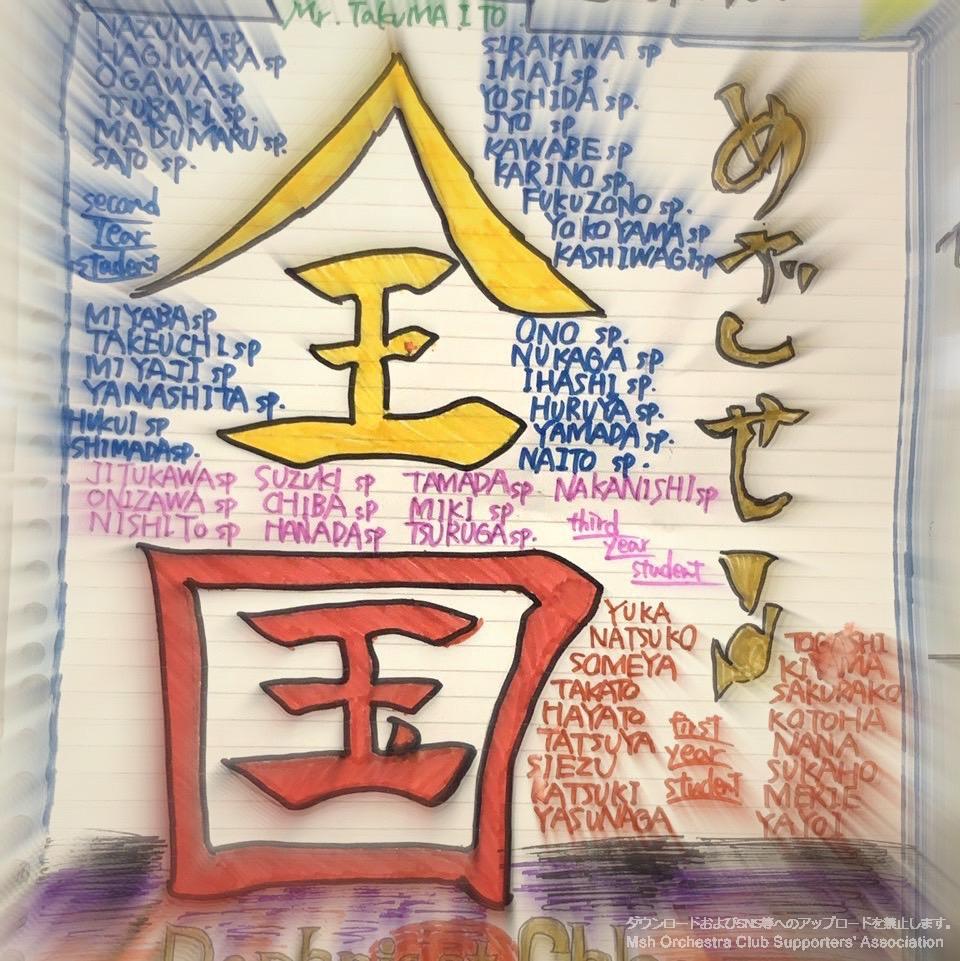 Mr. TakuMA ITO
NAZUNA sp
HAGIWARA sp
OGAWA sp
TSUBAKI sp.
MATSUMARU sp.
SATO sp.
second
year
student
MIYABA sp
TAKEUCHI sp
MIYAJI sp
YAMASHITA sp.
HUKUI sp
SHIMADA sp.
SIRAKAWA sp
IMAI sp.
YOSHIDA sp.
JYO sp
KAWABE sp
KARINO sp.
FUKUZONO sp.
YOKOYAMA sp
KASHIWAGI sp
ONO sp.
NUKAGA sp
IHASHI sp.
HURUYA sp.
YAMADA sp.
NAITO sp.
めざせ!!
全
国
JITUKAWA sp SUZUKI sp TAMADA sp NAKANISHI sp
ONIZAWA sp CHIBA sp MIKI sp
NISHITO sp HANADA sp TSURUGA sp.
third
year
student
YUKA
NATSUKO
SOMEYA
TAKATO
HAYATO
TATSUYA
SIEZU
KATSUKI
YASUNAGA
first
year
student
TOGASHI
KIYAMA
SAKURAKO
KOTOHA
NANA
SUKAHO
MEKIE
YAYOI
ダウンロードおよびSNS等へのアップロードを禁止します。
Msh Orchestra Club Supporters' Association